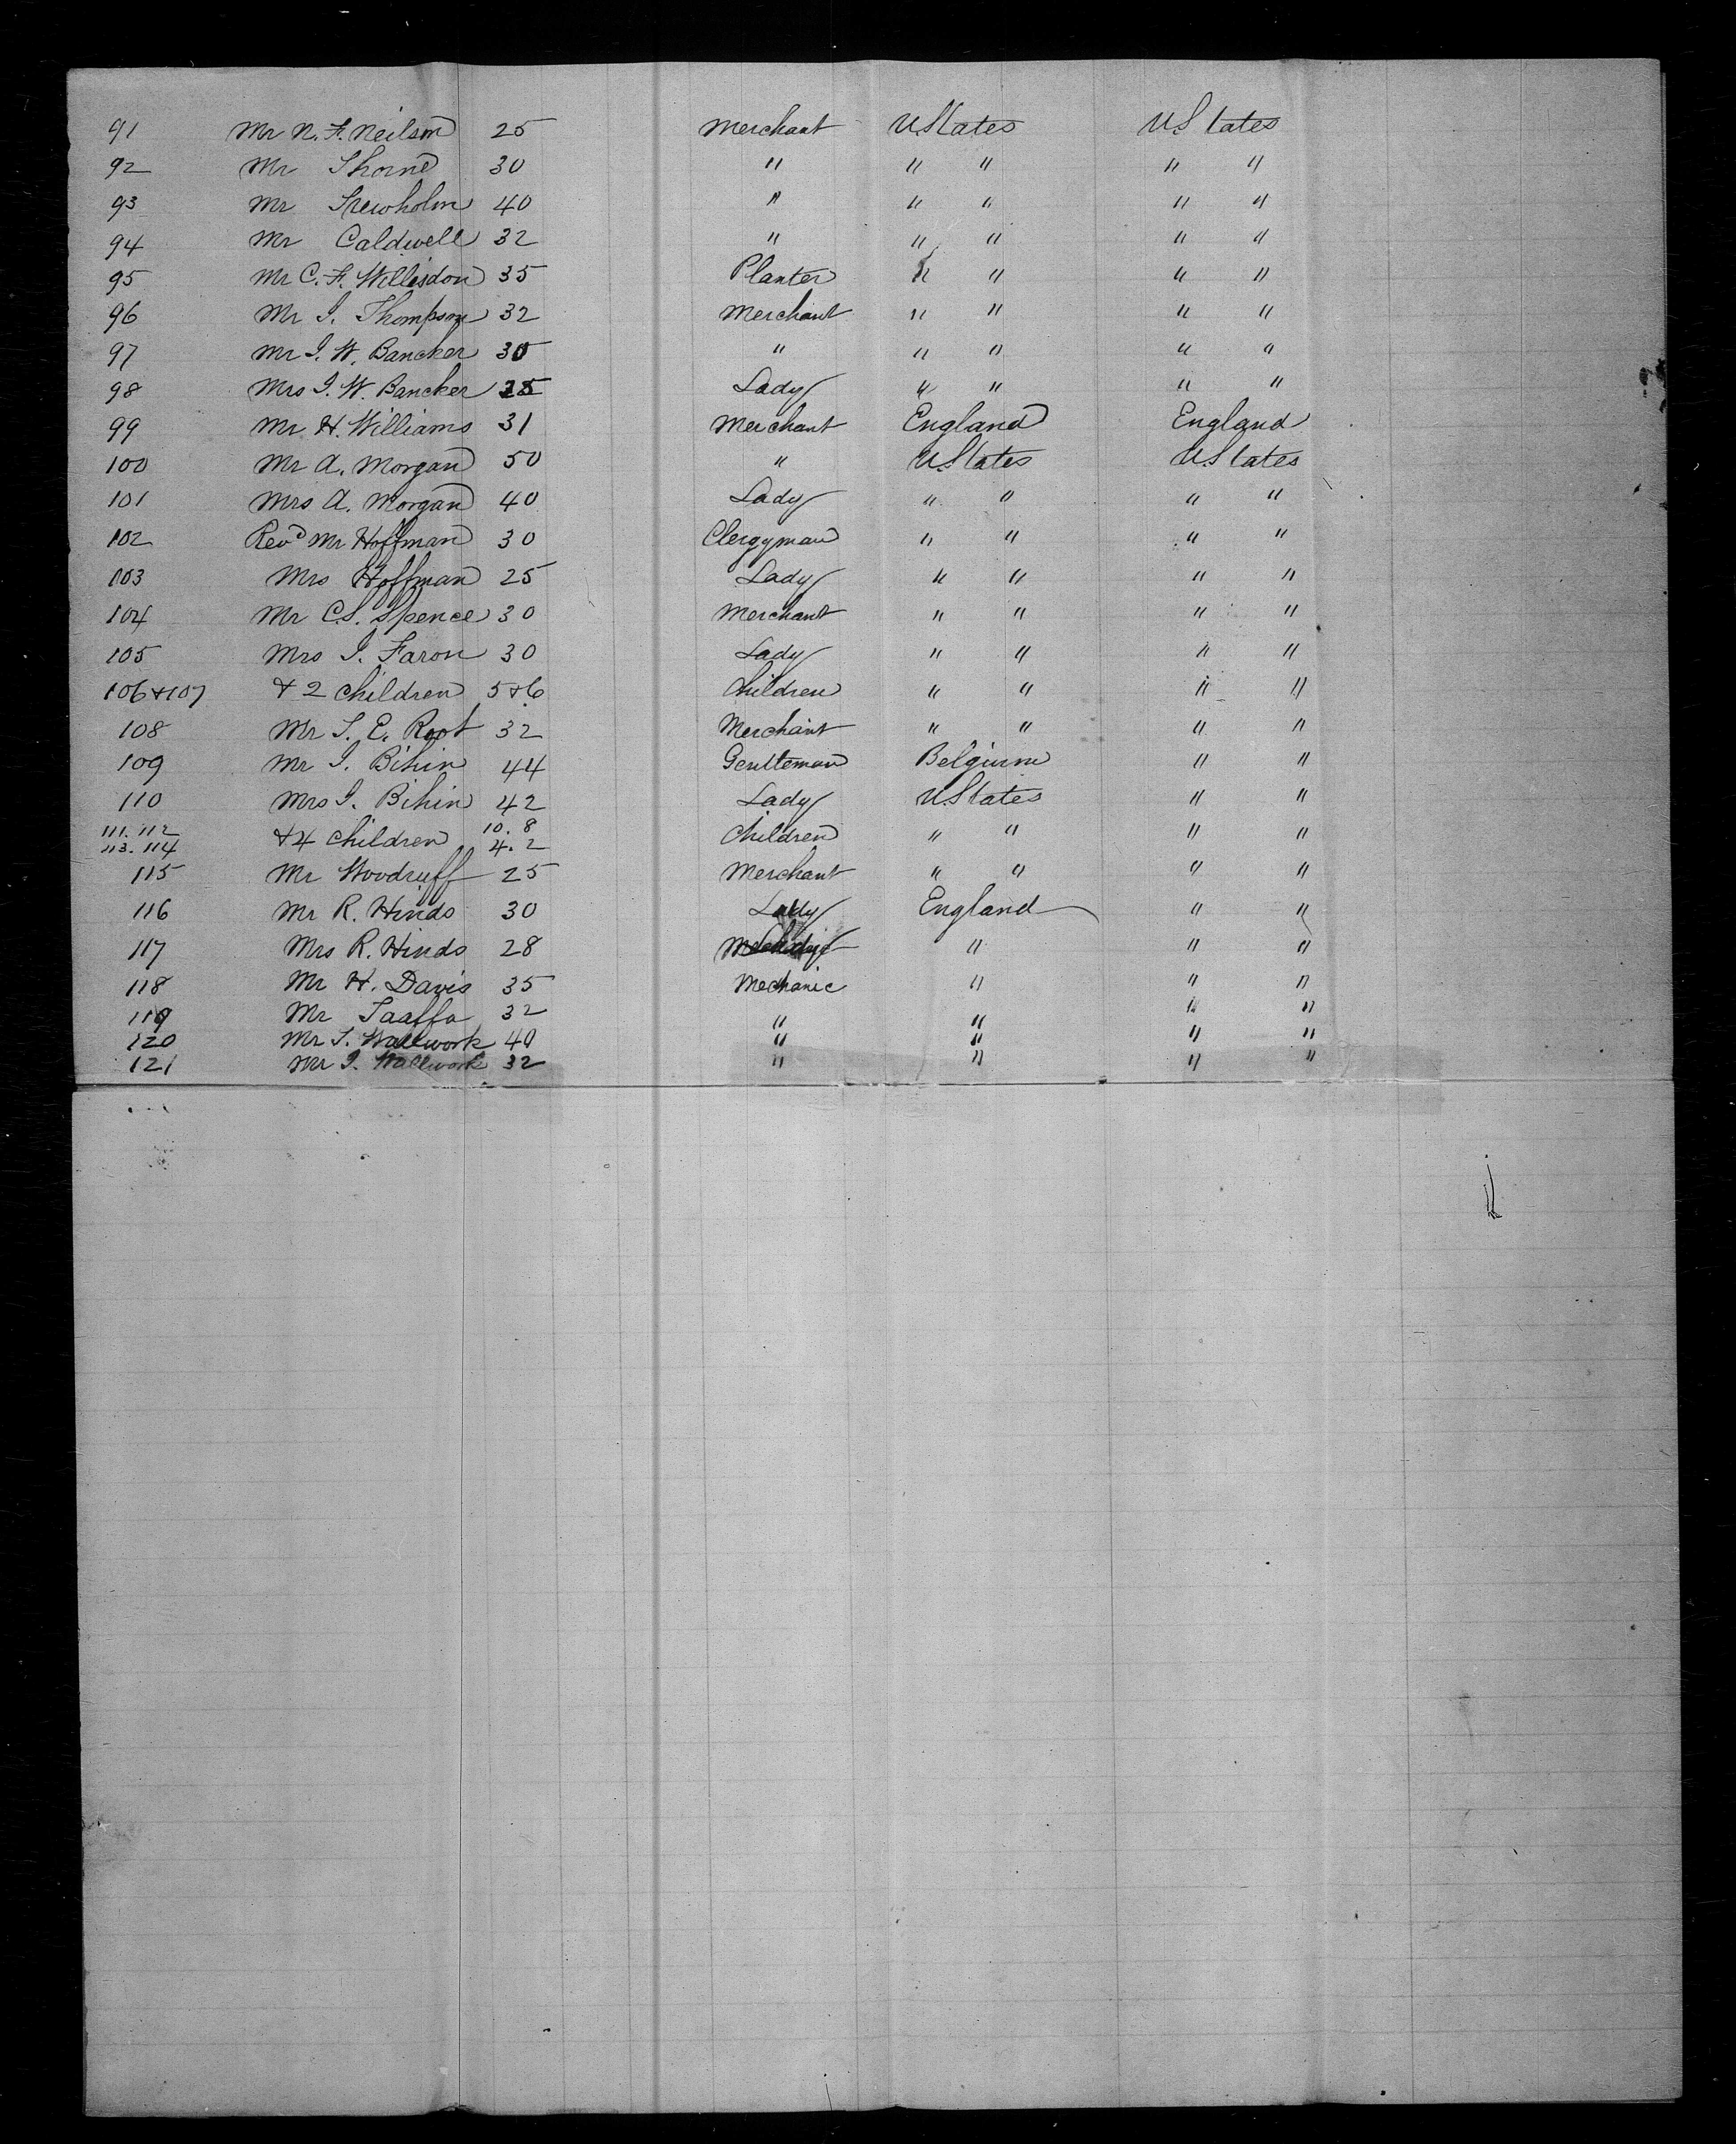 91 Mr N. F. Neilson 25 Merchant UStates UStates
92 Mr Thorne 30 " " " " "
93 Mr Trewholm 40 " " " " "
94 Mr Caldwell 32 " " " " "
95 Mr C. F. Willisdon 35 Planter " " " "
96 Mr I. Thompson 32 Merchant " " " "
97 Mr I. W. Bancker 30 " " " " "
98 Mrs I. W. Bancker 25 Lady " " " "
99 Mr H. Williams 31 Merchant England England
100 Mr A. Morgan 50 " UStates UStates
101 Mrs A. Morgan 40 Lady " " " "
102 Revd Mr Hoffman 30 Clergyman " " " "
103 Mrs Hoffman 25 Lady " " " "
104 Mr C.S. Spence 30 Merchant " " " "
105 Mrs I. Faron 30 Lady " " " "
106+107 + 2 children 5+6 Children " " " "
108 Mr S. E. Root 32 Merchant " " " "
109 Mr I. Bihin 44 Gentleman Belgium " "
110 Mrs I. Bihin 42 Lady UStates " "
111. 112 10. 8
113. 114 +4 children 4. 2 Children " " " "
115 Mr Woodruff 25 Merchant " " " "
116 Mr R. Hinds 30 Lady England " "
117 Mrs R. Hinds 28 " " "
118 Mr H. Davis 35 Mechanic " " "
119 Mr Taaffa 32 " " " "
120 Mr S. Wallwork 40 " " " "
121 Mr I. Wallwork 32 " " " "